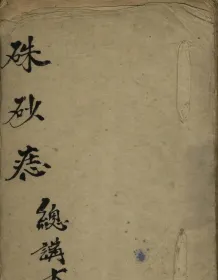 硃砂痣
總講